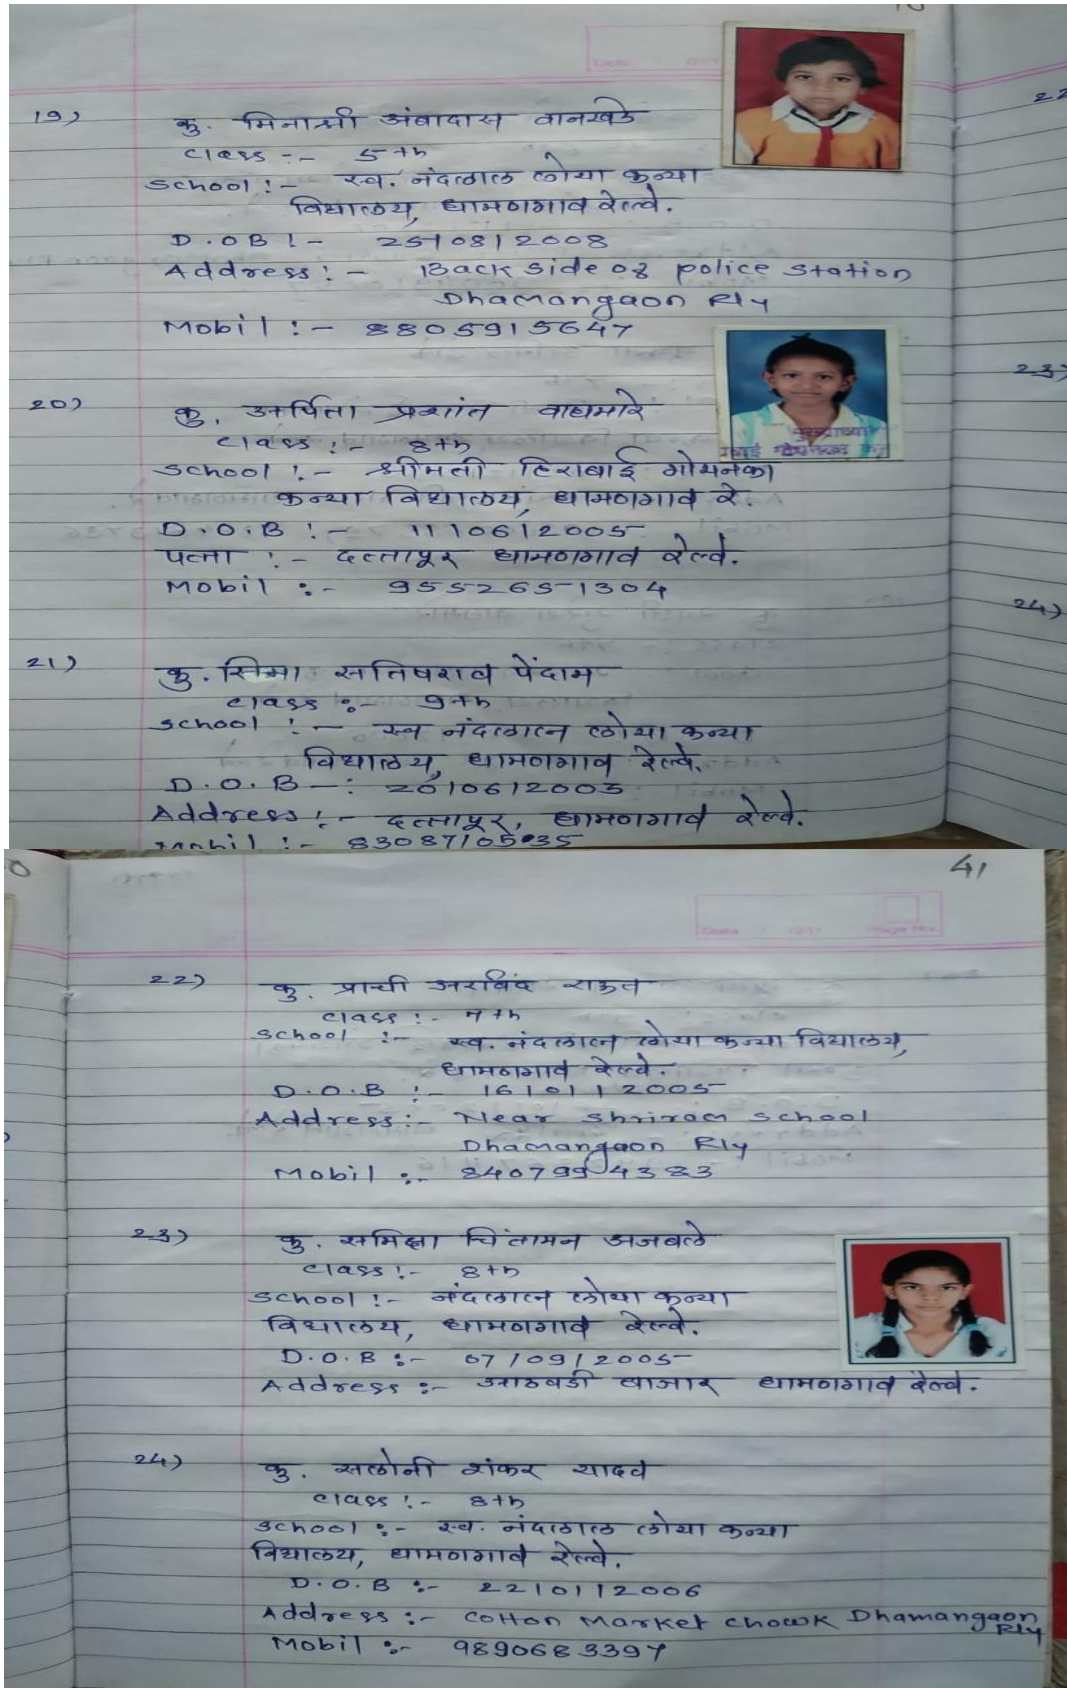 19) कु. मिनाश्री अंबादास वानखडे
class :- 5th
school :- स्व. नंदलाल लोया कन्या
विद्यालय, धामणगाव रेल्वे.
D.OB :- 25/08/2008
Address :- Back side of police station
Dhamangaon Rly
Mobil :- 8805915647
20) कु. अर्पिता प्रशांत वाघमारे
class :- 8th
school :- श्रीमती हिराबाई गोयनका
कन्या विद्यालय, धामणगाव रे.
D.O.B :- 11/06/2005
पत्ता :- दत्तापूर धामणगाव रेल्वे.
Mobil :- 9552651304
21) कु. सिमा सतिषराव पेंदाम
class :- 9th
school :- स्व नंदलाल लोया कन्या
विद्यालय, धामणगाव रेल्वे.
D.O.B :- 20/06/2003
Address :- दत्तापूर, धामणगाव रेल्वे.
Mobil :- 8308710535
22
23)
24)
41
22) कु. प्राची अरविंद राऊत
class :- 7th
school :- स्व. नंदलाल लोया कन्या विद्यालय,
धामणगाव रेल्वे.
D.O.B :- 16/01/2005
Address :- Near Shriram School
Dhamangaon Rly
Mobil :- 8407994383
23) कु. समिक्षा चिंतामन अजबले
class :- 8th
school :- नंदलाल लोया कन्या
विद्यालय, धामणगाव रेल्वे.
D.O.B :- 07/09/2005
Address :- आठवडी बाजार धामणगाव रेल्वे.
24) कु. सलोनी शंकर यादव
class :- 8th
school :- स्व. नंदलाल लोया कन्या
विद्यालय, धामणगाव रेल्वे.
D.O.B :- 22/01/2006
Address :- Cotton Market chowk Dhamangaon
Rly
Mobil :- 9890683397